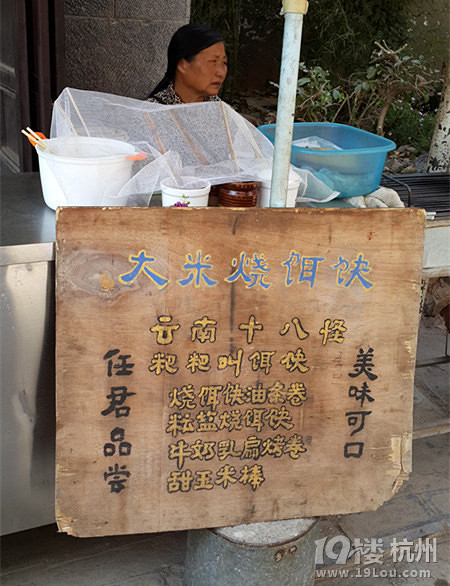 大米烧饵饫
云南十八怪
粑粑叫饵饫
任君品尝
烧饵饫油条卷
粘盐烧饵饫
牛奶乳扁烤卷
甜玉米棒
美味可口
19楼杭州
www.19lou.com